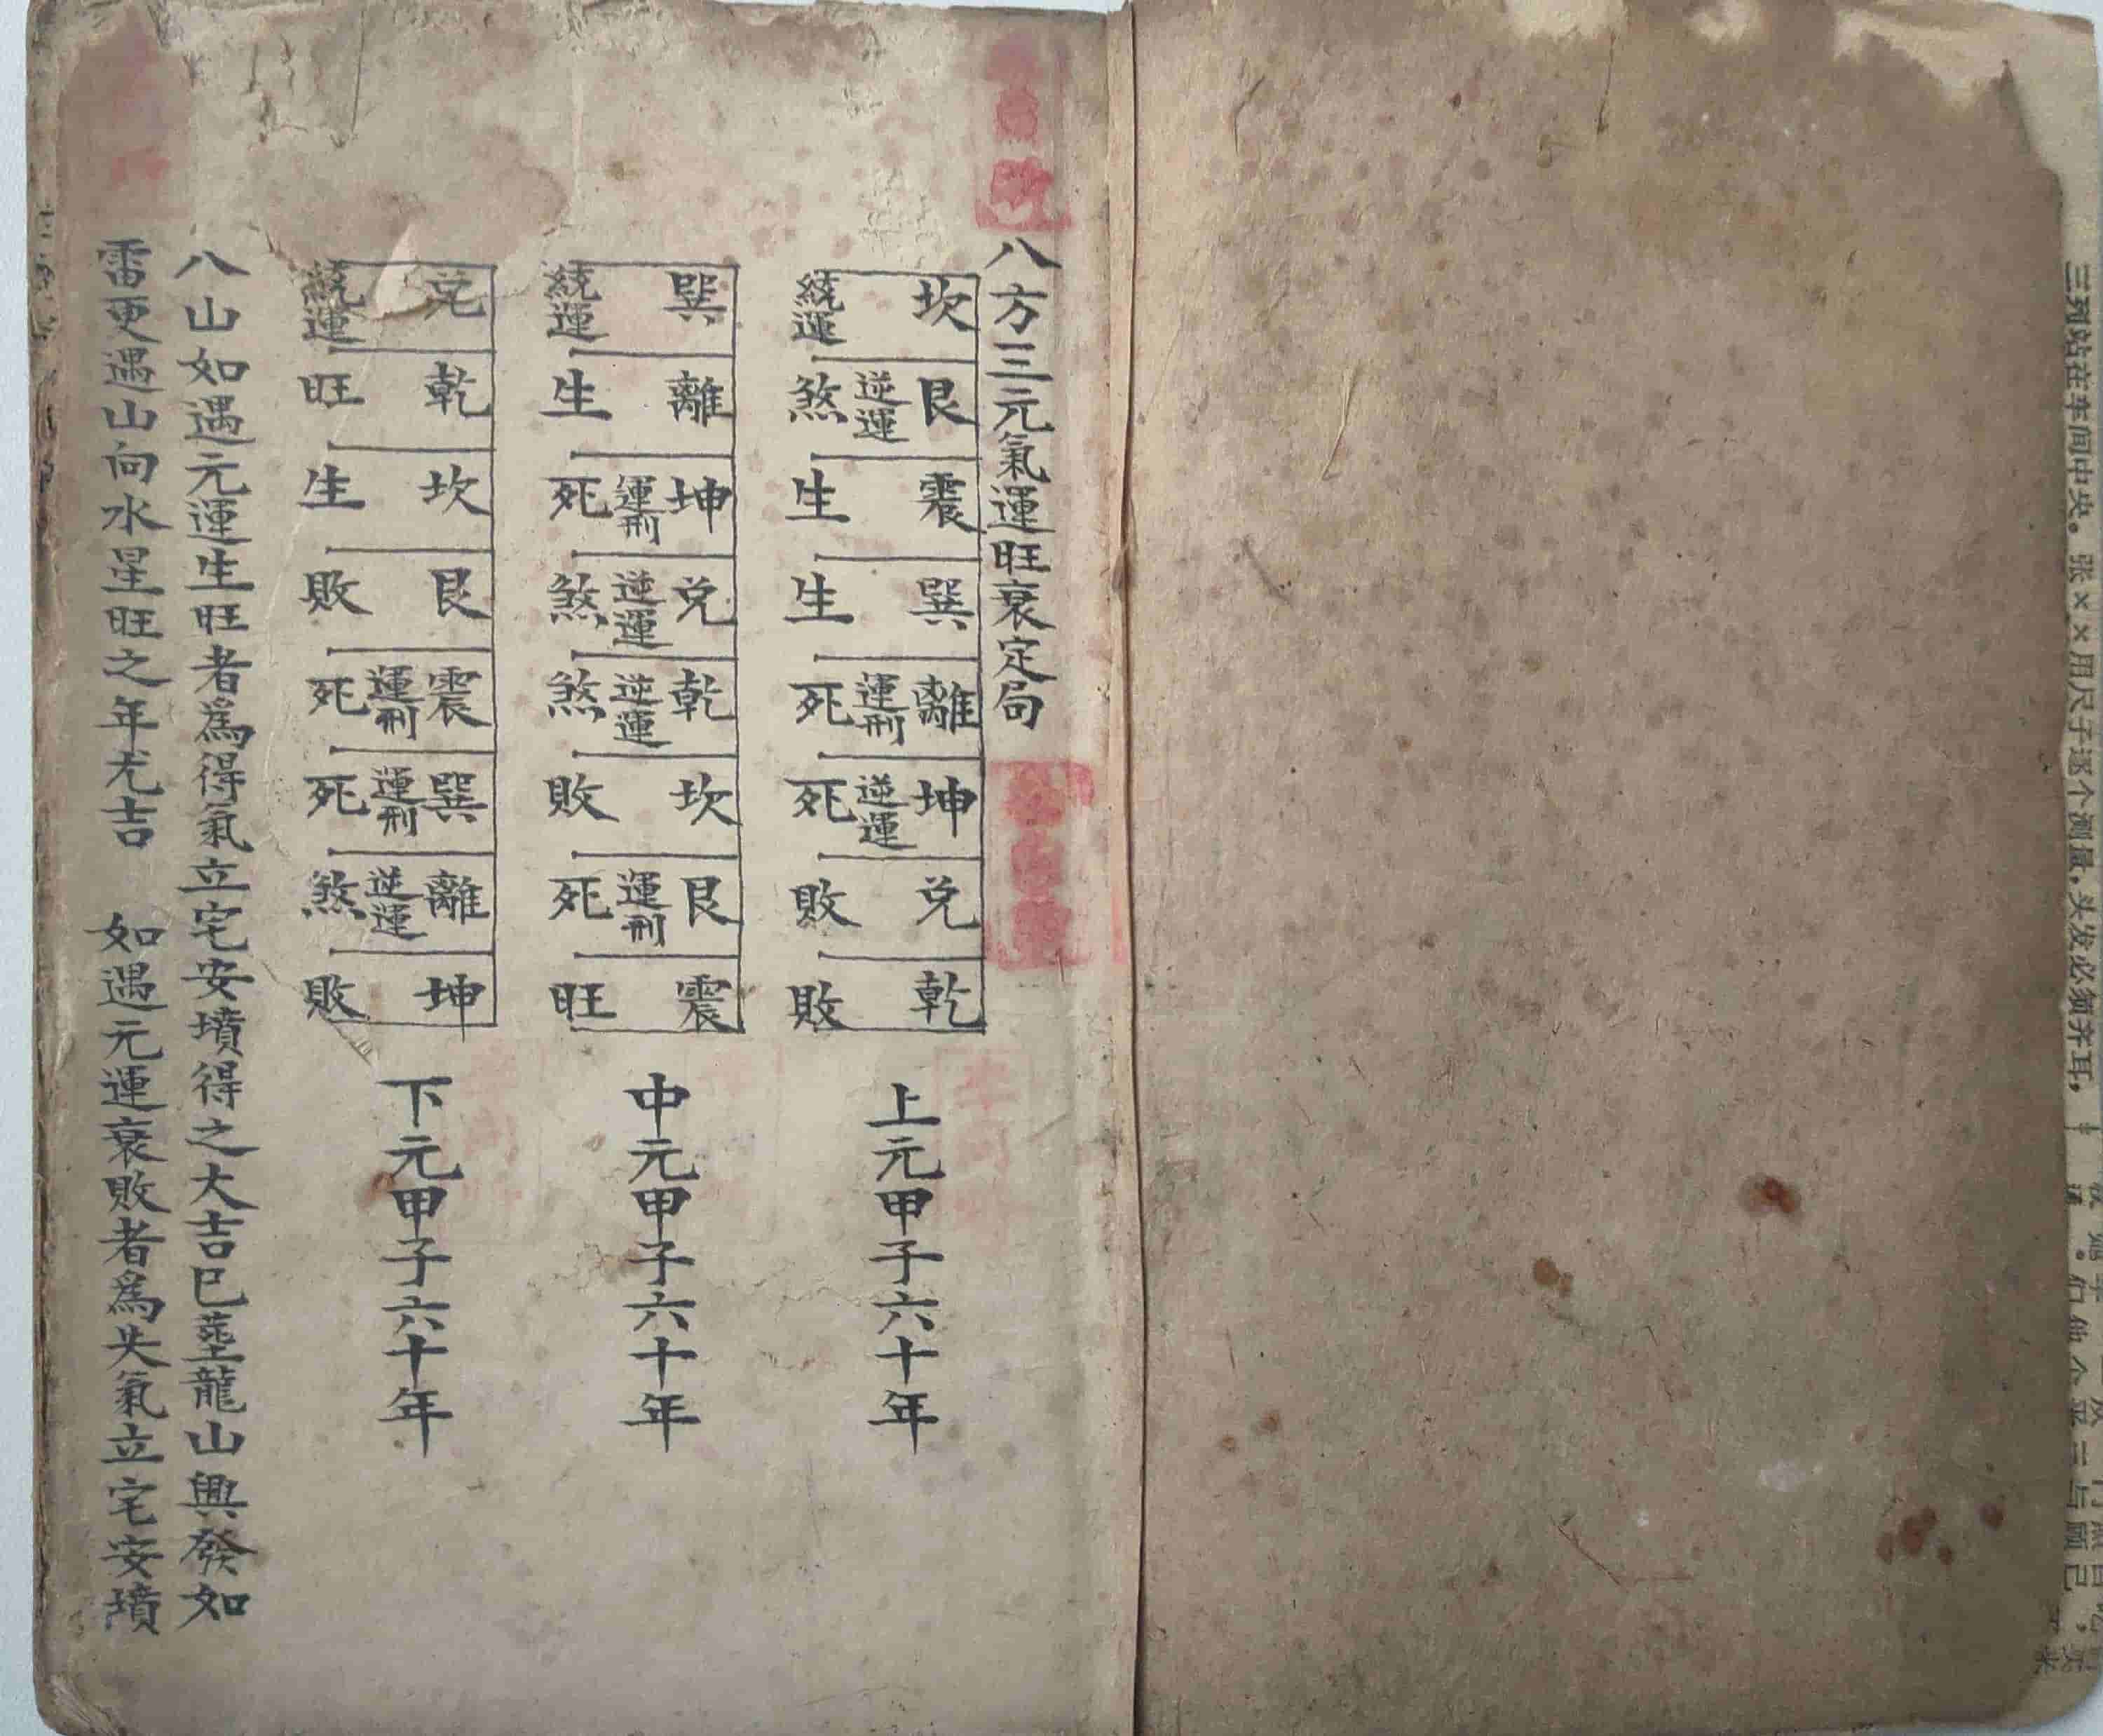 八方三元氣運旺衰定局
坎 統運
艮 逆運 煞
震 生
巽 生
離 運刑 死
坤 逆運 死
兌 敗
乾 敗
上元甲子六十年
巽 統運
離 生
坤 運刑 死
兌 逆運 煞
乾 逆運 煞
坎 敗
艮 運刑 死
震 旺
中元甲子六十年
兌 統運
乾 旺
坎 生
艮 敗
震 運刑 死
巽 運刑 死
離 逆運 煞
坤 敗
下元甲子六十年
八山如遇元運生旺者爲得氣立宅安墳得之大吉巳塟龍山興發如
雷更遇山向水星旺之年尤吉 如遇元運衰敗者爲失氣立宅安墳
三列站在车间中央。张××用尺子逐个测量,头发必须齐耳,